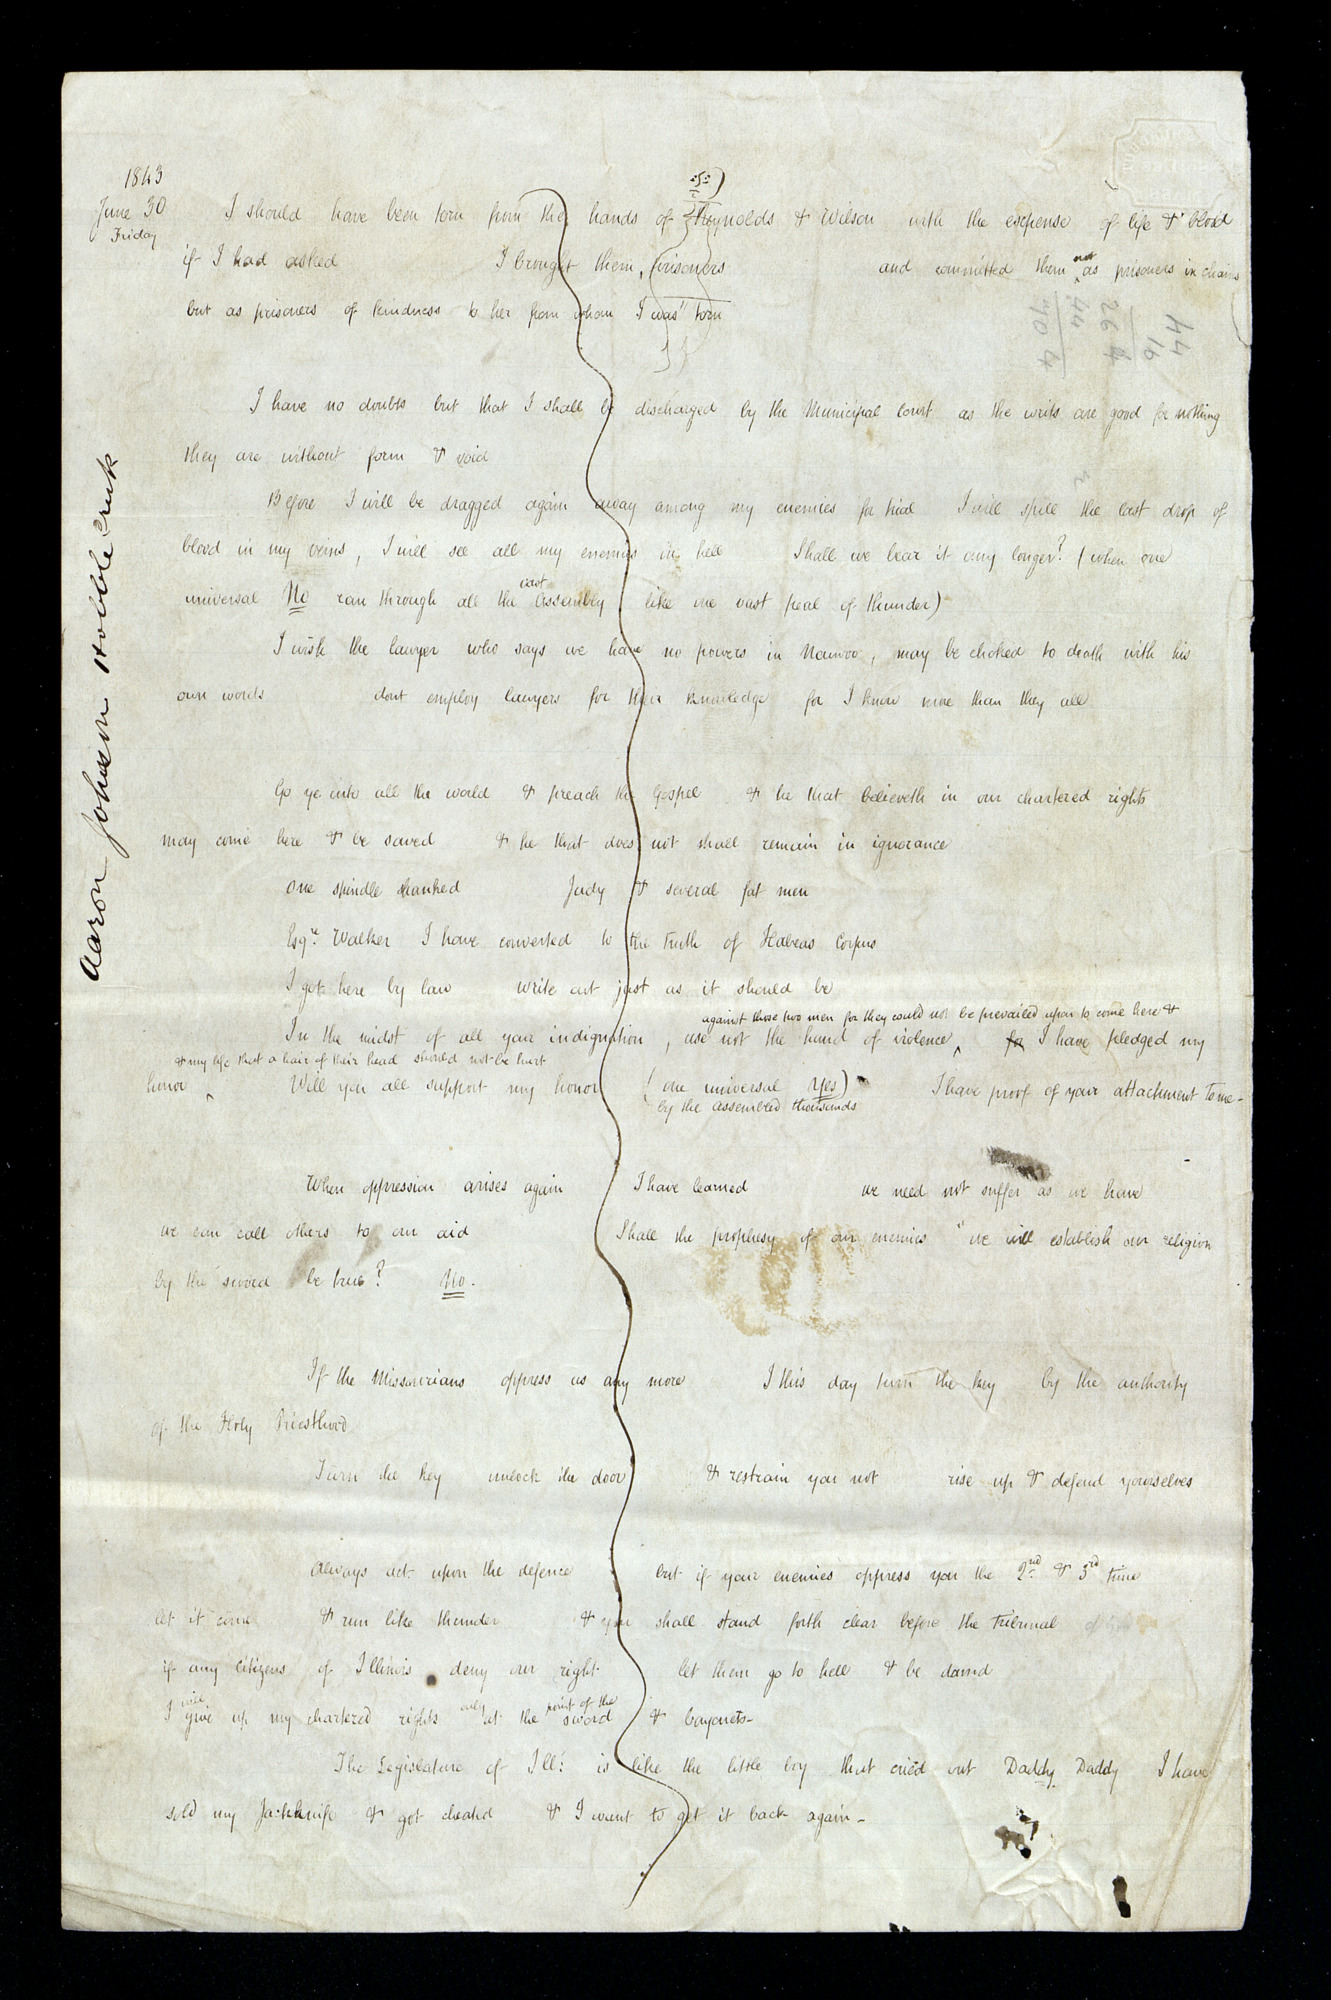 1843
June 30
Friday
I should have been torn from the hands of Reynolds & Wilson with the expense of life & blood
if I had asked I brought them, prisoners and committed them not as prisoners in chains
but as prisoners of kindness to her from whom I was torn
44
16
26
44
70 4
I have no doubts but that I shall be discharged by the Municipal court as the writs are good for nothing
they are without form & void
Before I will be dragged again away among my enemies for trial I will spill the last drop of
blood in my veins, I will see all my enemies in hell Shall we bear it any longer? (when one
universal No ran through all the vast assembly like one vast peal of thunder)
I wish the lawyer who says we have no powers in Nauvoo, may be choked to death with his
own words dont employ lawyers for their knowledge for I know more than they all
Go ye into all the world & preach the Gospel & he that believeth in our chartered rights
may come here & be saved & he that does not shall remain in ignorance
One spindle shanked Judy & several fat men
Esqre. Walker I have converted to the truth of Habeas Corpus
I got here by law write out just as it should be
against those two men for they could not be prevailed upon to come here &
In the midst of all your indignation, use not the hand of violence for I have pledged my
& my life that a hair of their head should not be hurt
honor Will you all support my honor (one universal Yes) I have proof of your attachment to me-
by the assembled thousands
When oppression arises again I have learned we need not suffer as we have
we can call others to our aid Shall the prophesy of our enemies "we will establish our religion
by the sword be true? No.
If the Missourians oppress us any more I this day turn the key by the authority
of the Holy Priesthood
Turn the key unlock the door & restrain you not rise up & defend yourselves
Always act upon the defence but if your enemies oppress you the 2nd. & 3rd time
let it come & run like thunder & you shall stand forth clear before the tribunal
if any citizens of Illinois deny our right let them go to hell & be damd
I will give up my chartered rights only at the point of the sword & bayonets-
The Legislature of Ill: is like the little boy that cried out Daddy Daddy I have
sold my Jackknife & got cheated & I want to get it back again-
Aaron Johnson Hobble Creek